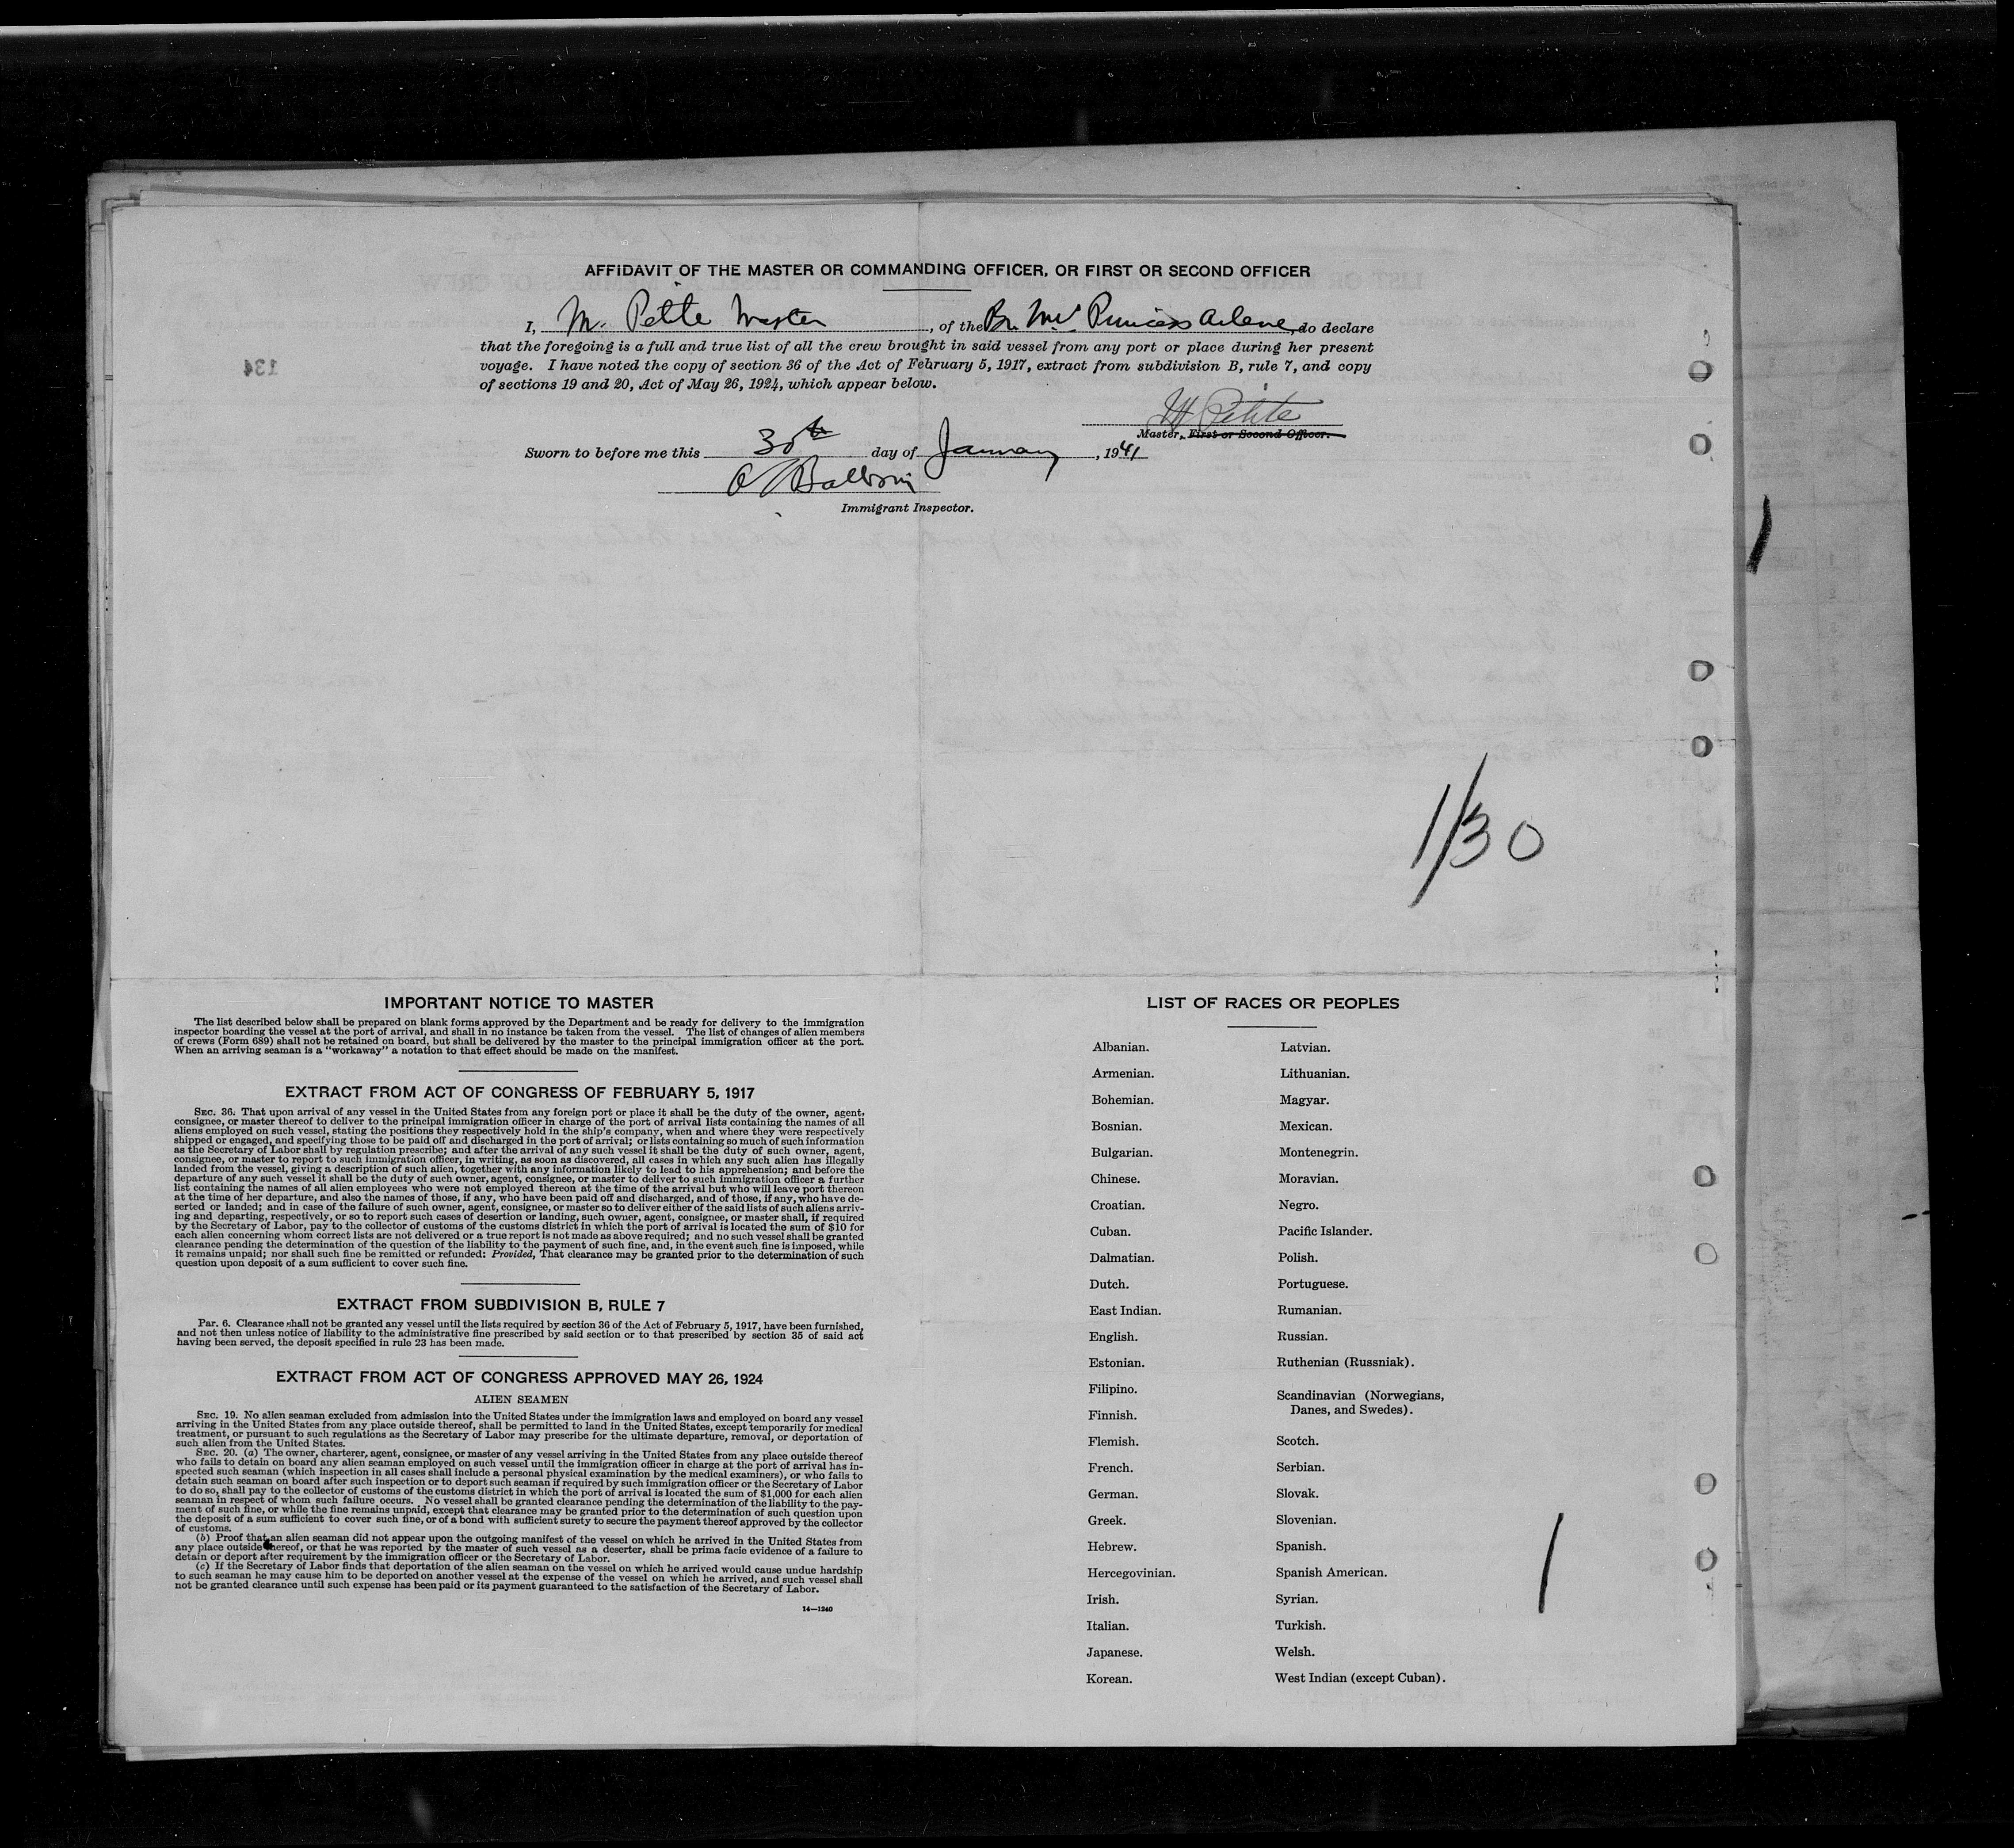 AFFIDAVIT OF THE MASTER OR COMMANDING OFFICER, OR FIRST OR SECOND OFFICER
I, M. Petite Master, of the Br. M.V. Princess Arlene, do declare
that the foregoing is a full and true list of all the crew brought in said vessel from any port or place during her present
voyage. I have noted the copy of section 36 of the Act of February 5, 1917, extract from subdivision B, rule 7, and copy
of sections 19 and 20, Act of May 26, 1924, which appear below.
M Petite
Master, First or Second Officer.
Sworn to before me this 30th day of January, 1941
Immigrant Inspector.
134
1/30
IMPORTANT NOTICE TO MASTER
The list described below shall be prepared on blank forms approved by the Department and be ready for delivery to the immigration
inspector boarding the vessel at the port of arrival, and shall in no instance be taken from the vessel. The list of changes of alien members
of crews (Form 689) shall not be retained on board, but shall be delivered by the master to the principal immigration officer at the port.
When an arriving seaman is a "workaway" a notation to that effect should be made on the manifest.
EXTRACT FROM ACT OF CONGRESS OF FEBRUARY 5, 1917
SEC. 36. That upon arrival of any vessel in the United States from any foreign port or place it shall be the duty of the owner, agent,
consignee, or master thereof to deliver to the principal immigration officer in charge of the port of arrival lists containing the names of all
aliens employed on such vessel, stating the positions they respectively hold in the ship's company, when and where they were respectively
shipped or engaged, and specifying those to be paid off and discharged in the port of arrival; or lists containing so much of such information
as the Secretary of Labor shall by regulation prescribe; and after the arrival of any such vessel it shall be the duty of such owner, agent,
consignee, or master to report to such immigration officer, in writing, as soon as discovered, all cases in which any such alien has illegally
landed from the vessel, giving a description of such alien, together with any information likely to lead to his apprehension; and before the
departure of any such vessel it shall be the duty of such owner, agent, consignee, or master to deliver to such immigration officer a further
list containing the names of all alien employees who were not employed thereon at the time of the arrival but who will leave port thereon
at the time of her departure, and also the names of those, if any, who have been paid off and discharged, and of those, if any, who have de-
serted or landed; and in case of the failure of such owner, agent, consignee, or master so to deliver either of the said lists of such aliens arriv-
ing and departing, respectively, or so to report such cases of desertion or landing, such owner, agent, consignee, or master shall, if required
by the Secretary of Labor, pay to the collector of customs of the customs district in which the port of arrival is located the sum of $10 for
each alien concerning whom correct lists are not delivered or a true report is not made as above required; and no such vessel shall be granted
clearance pending the determination of the question of the liability to the payment of such fine, and, in the event such fine is imposed, while
it remains unpaid; nor shall such fine be remitted or refunded: Provided, That clearance may be granted prior to the determination of such
question upon deposit of a sum sufficient to cover such fine.
EXTRACT FROM SUBDIVISION B, RULE 7
Par. 6. Clearance shall not be granted any vessel until the lists required by section 36 of the Act of February 5, 1917, have been furnished,
and not then unless notice of liability to the administrative fine prescribed by said section or to that prescribed by section 35 of said act
having been served, the deposit specified in rule 23 has been made.
EXTRACT FROM ACT OF CONGRESS APPROVED MAY 26, 1924
ALIEN SEAMEN
SEC. 19. No alien seaman excluded from admission into the United States under the immigration laws and employed on board any vessel
arriving in the United States from any place outside thereof, shall be permitted to land in the United States, except temporarily for medical
treatment, or pursuant to such regulations as the Secretary of Labor may prescribe for the ultimate departure, removal, or deportation of
such alien from the United States.
SEC. 20. (a) The owner, charterer, agent, consignee, or master of any vessel arriving in the United States from any place outside thereof
who fails to detain on board any alien seaman employed on such vessel until the immigration officer in charge at the port of arrival has in-
spected such seaman (which inspection in all cases shall include a personal physical examination by the medical examiners), or who fails to
detain such seaman on board after such inspection or to deport such seaman if required by such immigration officer or the Secretary of Labor
to do so, shall pay to the collector of customs of the customs district in which the port of arrival is located the sum of $1,000 for each alien
seaman in respect of whom such failure occurs. No vessel shall be granted clearance pending the determination of the liability to the pay-
ment of such fine, or while the fine remains unpaid, except that clearance may be granted prior to the determination of such question upon
the deposit of a sum sufficient to cover such fine, or of a bond with sufficient surety to secure the payment thereof approved by the collector
of customs.
(b) Proof that an alien seaman did not appear upon the outgoing manifest of the vessel on which he arrived in the United States from
any place outside thereof, or that he was reported by the master of such vessel as a deserter, shall be prima facie evidence of a failure to
detain or deport after requirement by the immigration officer or the Secretary of Labor.
(c) If the Secretary of Labor finds that deportation of the alien seaman on the vessel on which he arrived would cause undue hardship
to such seaman he may cause him to be deported on another vessel at the expense of the vessel on which he arrived, and such vessel shall
not be granted clearance until such expense has been paid or its payment guaranteed to the satisfaction of the Secretary of Labor.
14—1240
LIST OF RACES OR PEOPLES
Albanian.
Armenian.
Bohemian.
Bosnian.
Bulgarian.
Chinese.
Croatian.
Cuban.
Dalmatian.
Dutch.
East Indian.
English.
Estonian.
Filipino.
Finnish.
Flemish.
French.
German.
Greek.
Hebrew.
Hercegovinian.
Irish.
Italian.
Japanese.
Korean.
Latvian.
Lithuanian.
Magyar.
Mexican.
Montenegrin.
Moravian.
Negro.
Pacific Islander.
Polish.
Portuguese.
Rumanian.
Russian.
Ruthenian (Russniak).
Scandinavian (Norwegians,
Danes, and Swedes).
Scotch.
Serbian.
Slovak.
Slovenian.
Spanish.
Spanish American.
Syrian.
Turkish.
Welsh.
West Indian (except Cuban).